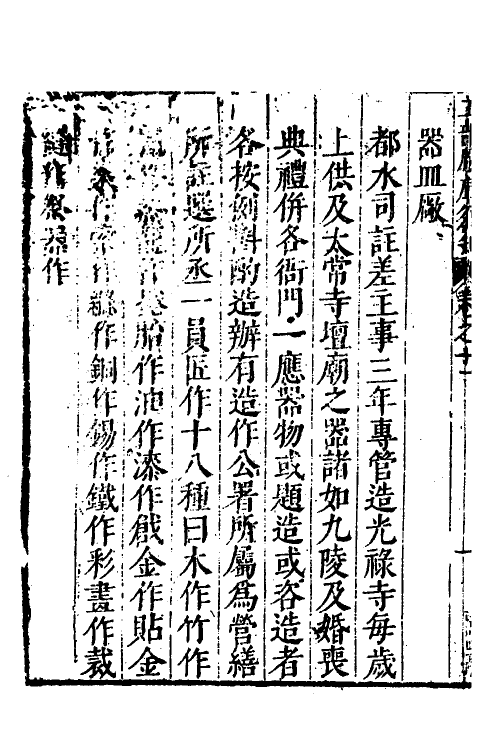 器皿廠
都水司註差主事三年專管造光祿寺每歲
上供及太常寺壇廟之器諸如九陵及婚喪
典禮併各衙門一應器物或題造或咨造者
各按例斟酌造辦有造作公署所屬為營繕
所註選所丞一員匠作十八種曰木作竹作
卷胎作油作漆作戧金作貼金
作索作縧作銅作錫作鐵作彩畫作裁
縫作祭器作